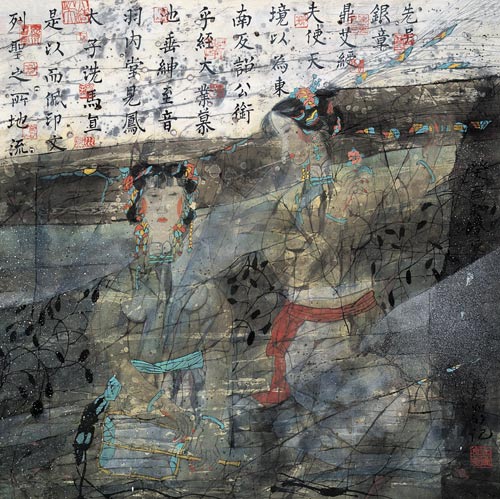 先品
銀章
鼎艾經
夫使天
境以為東
南及詔公銜
乎經大業慕
池垂紳至音
羽内宰見鳳
太子洗馬直
是以而佩印文
列聖之所地流